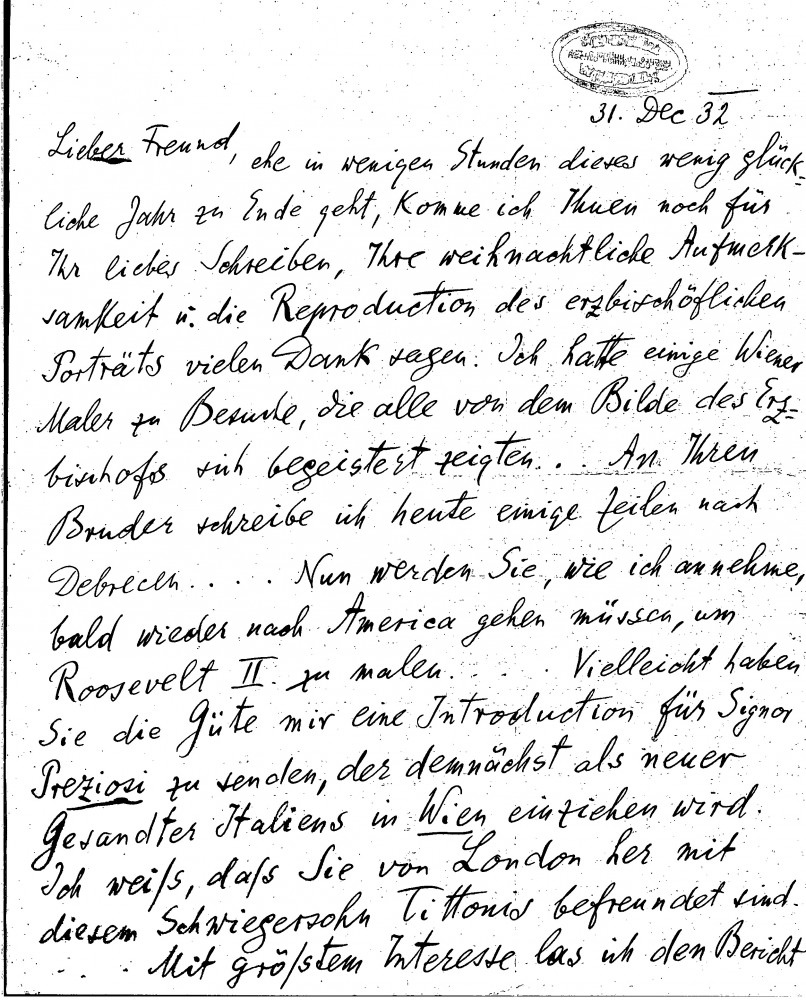 31. Dec 32
Lieber Freund, ehe in wenigen Stunden dieses wenig glück-
liche Jahr zu Ende geht, Komme ich Ihnen noch für
Ihr liebes Schreiben, Ihre weihnachtliche Aufmerk-
samkeit u. die Reproduction des erzbischöflichen
Porträts vielen Dank sagen. Ich hatte einige Wiener
Maler zu Besuche, die alle von dem Bilde des Erz-
bischofs sich begeistert zeigten.. An Ihren
Bruder schreibe ich heute einige Zeilen nach
Debrecen.... Nun werden Sie, wie ich annehme,
bald wieder nach America gehen müssen, um
Roosevelt II. zu malen.... Vielleicht haben
Sie die Güte mir eine Introduction für Signor
Preziosi zu senden, der demnächst als neuer
Gesandter Italiens in Wien einziehen wird.
Ich weiß, daß Sie von London her mit
diesem Schwiegersohn Tittonis befreundet sind.
... Mit größtem Interesse las ich den Bericht